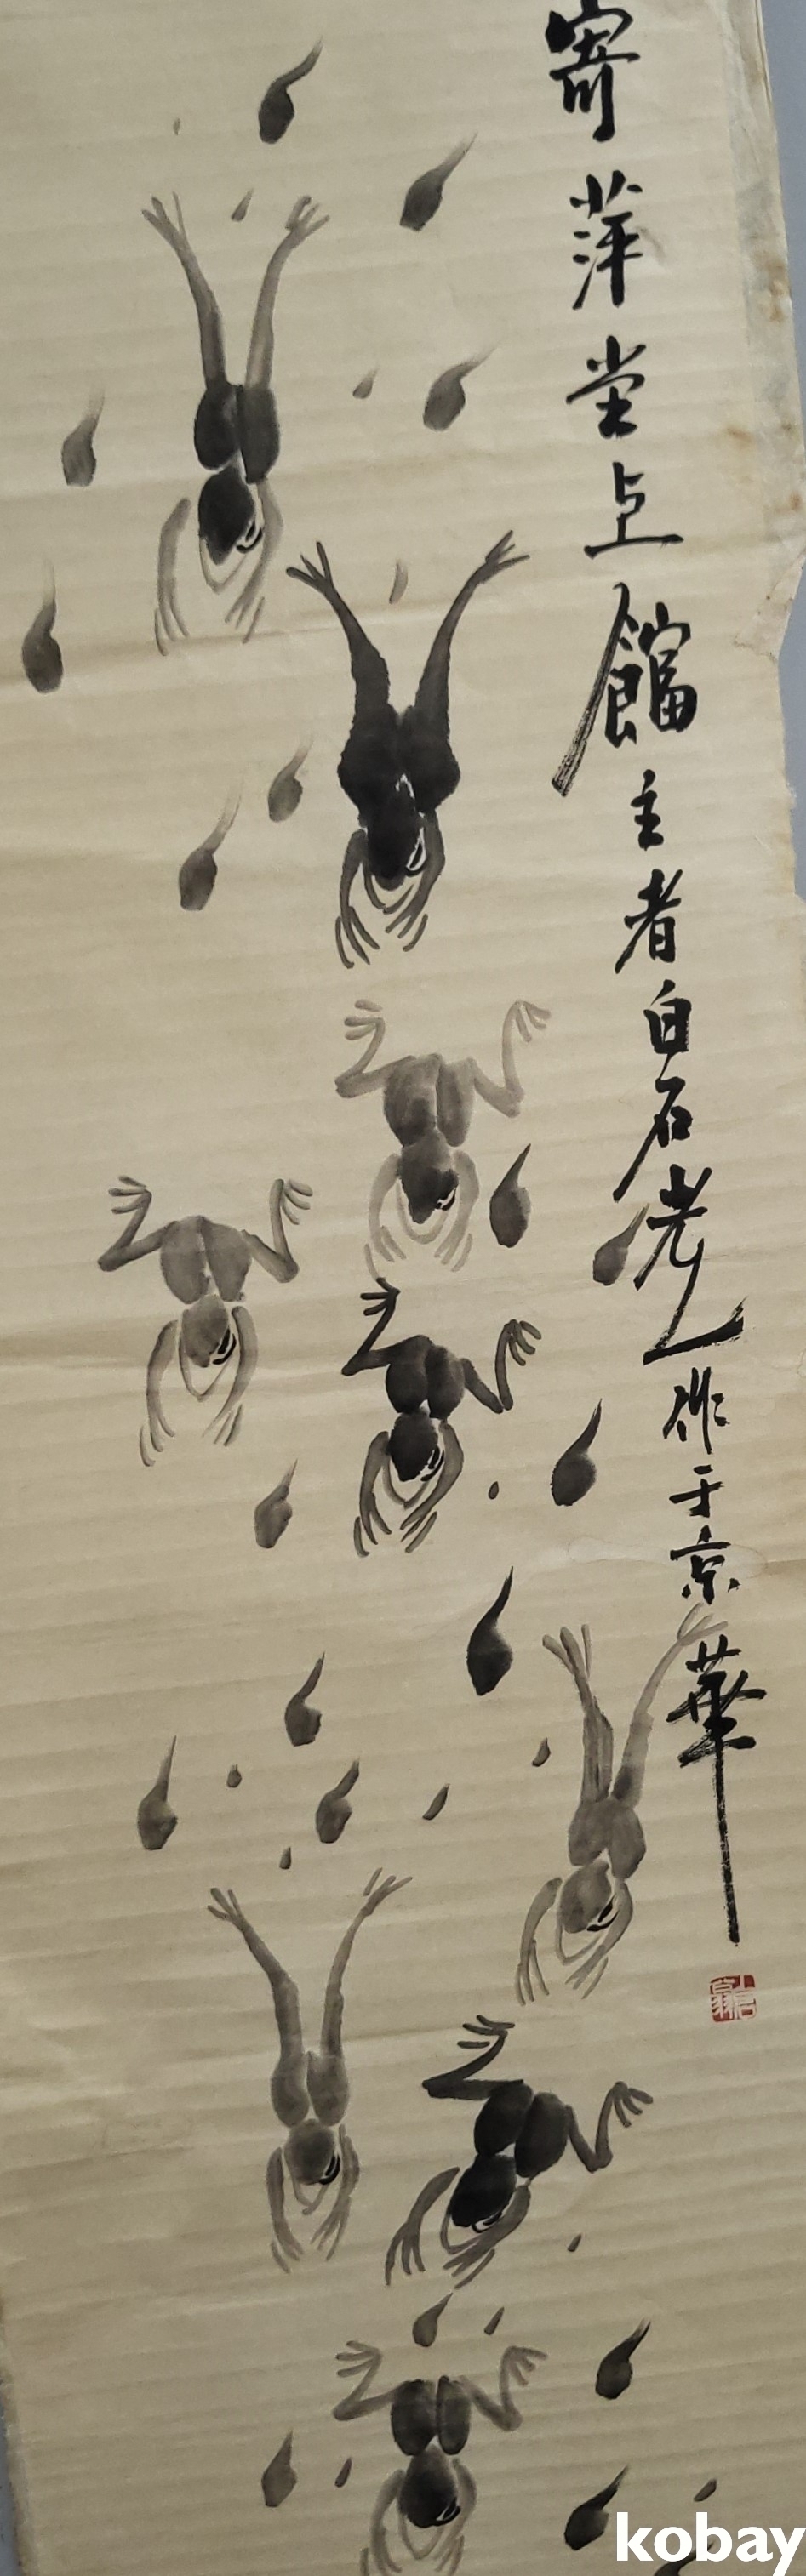 寄萍堂上
館主者白石老人作于京華
kobay